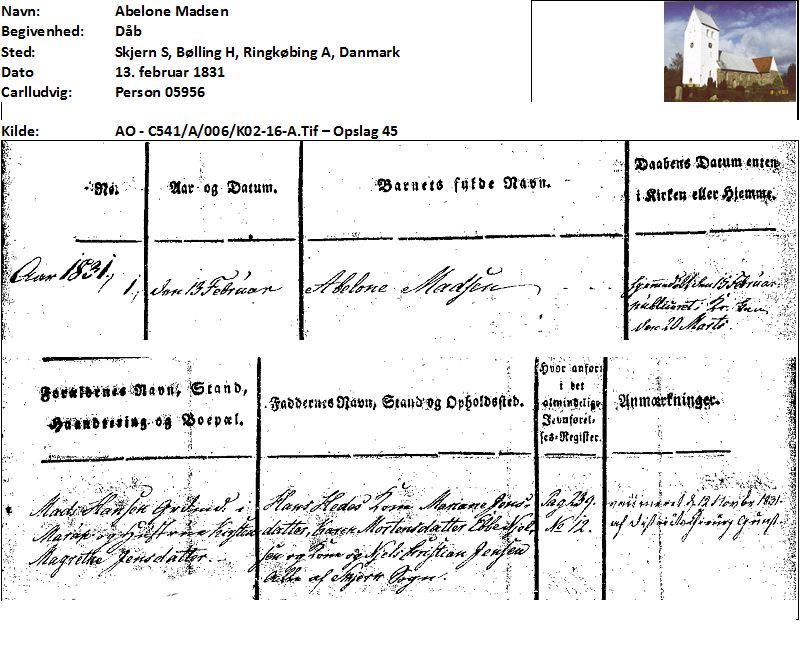 Navn: Abelone Madsen
Begivenhed: Dåb
Sted: Skjern S, Bølling H, Ringkøbing A, Danmark
Dato 13. februar 1831
Carlludvig: Person 05956
Kilde: AO - C541/A/006/K02-16-A.Tif – Opslag 45
No.
Aar og Datum.
Barnets fulde Navn.
Daabens Datum enten
i Kirken eller Hjemme.
Aar 1831,
1, den 13 Februar
Abelone Madsen
den 13 Februar
publiceret
den 20 Marts
Forældrenes Navn, Stand,
Haandtering og Boepæl.
Faddernes Navn, Stand og Opholdssted.
Hvor anført
i det
almindelige
Jevnførel-
ses-Register.
Anmærkninger.
Mads Hansen i
og Hustrue Kirsten
Magrethe Jensdatter.
Hans Hedes Kone Mariane Jens-
datter, Karen Mortensdatter
og Kone og Niels Kristian Jensen
Alle af Skjern Sogn.
Pag 239.
No 12.
1831
af